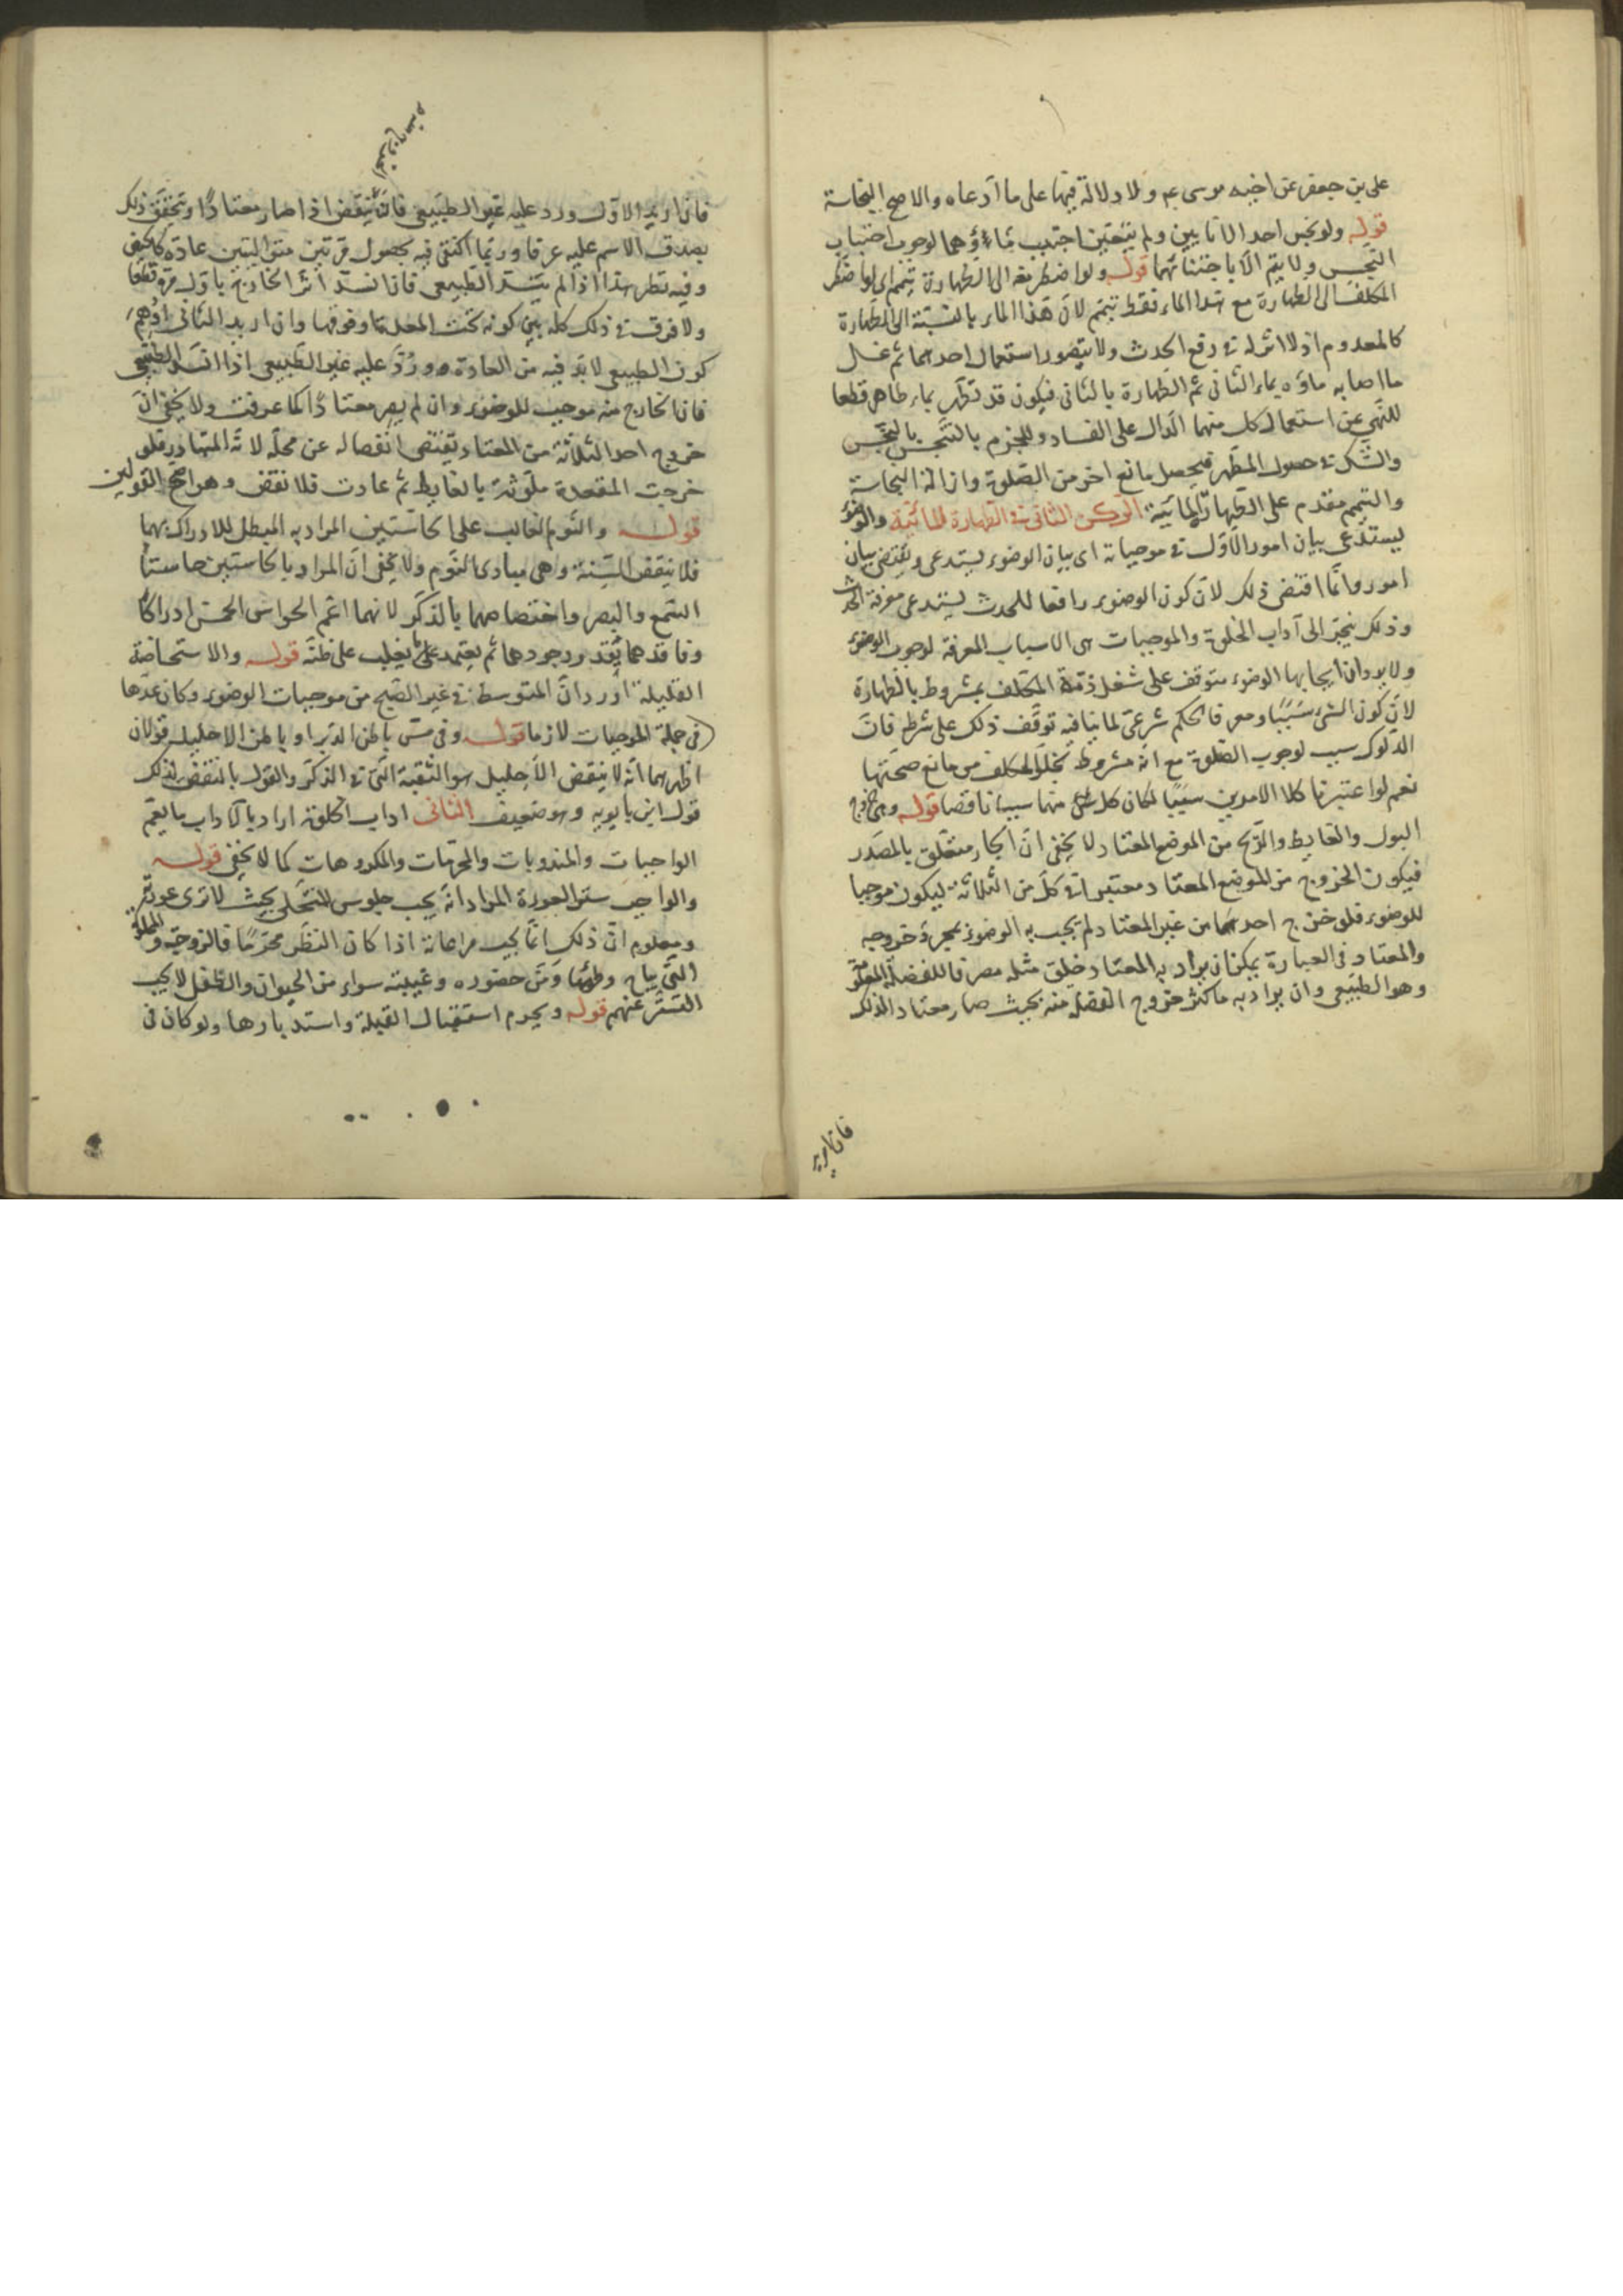 على بن جعفر عن اخيه موسى عم ولا دلالة فيها على ما ادعاه والاصح النجاسة
قوله ولو نجس احد الانائين ولم يتعين اجتنب ماؤهما لوجوب اجتناب
النجس ولا يتم الا باجتنابهما قوله ولو اضطر معه الى الطهارة تيمم اى لو اضطر
المكلف الى الطهارة مع هذا الماء فقط تيمم لان هذا الماء بالنسبة الى الطهارة
كالمعدوم اذ لا اثر له فى رفع الحدث ولا يتصور استعمال احدهما ثم غسل
ما اصابه ماؤه بماء الثانى ثم الطهارة بالثانى فيكون قد تطهر بماء طاهر قطعا
للنهى عن استعمال كل منهما الدال على الفساد وللجزم بالتنجس بالنجس
والشك فى حصول المطهر فيحصل مانع اخر من الصلوة وازالة النجاسة
والتيمم مقدم على الطهارة المائية الركن الثانى فى الطهارة المائية والوضوء
يستدعى بيان امور الاول فى موجباته اى بيان الوضوء يستدعى ويقتضى بيان
امور وانما اقتضى ذلك لان كون الوضوء رافعا للحدث يستدعى معرفة الحدث
وذلك ينجر الى آداب الخلوة والموجبات هى الاسباب المعرفة لوجوب الوضوء
ولا يرد ان ايجابها الوضوء متوقف على شغل ذمة المكلف بمشروط بالطهارة
لان كون الشئ سببا ومعرفا لحكم شرعى لا ينافيه توقف ذلك على شرط فان
الدلوك سبب لوجوب الصلوة مع انه مشروط بخلو المكلف من مانع صحتها
نعم لو اعتبرنا كلا الامرين سببا لكان كل منها سببا ناقصا قوله وهى خروج
البول والغايط والريح من الموضع المعتاد لا يخفى ان الجار متعلق بالمصدر
فيكون الخروج من الموضع المعتاد معتبرا فى كل من الثلاثة ليكون موجبا
للوضوء فلو خرج احدها من غير المعتاد لم يجب به الوضوء بمجرد خروجه
والمعتاد فى العبارة يمكن ان يراد به المعتاد خلق مثله مصرفا للفضلة المعلومة
وهو الطبيعى وان يراد به ما كثر خروج الفضلة منه بحيث صار معتادا لذلك
فان اريد
فان اريد الاول ورد عليه غير الطبيعى فانه ينقض اذا صار معتادا ويتحقق ذلك
بصدق الاسم عليه عرفا وربما اكتفى فيه بحصول مرتين متواليتين عادة كالحيض
وفيه نظر هذا اذا لم ينسد الطبيعى فاذا انسد اثر الخارج باول مرة قطعا
ولا فرق فى ذلك كله بين كونه تحت المعدة او فوقها وان اريد الثانى اوهم
كون الطبيعى لا بد فيه من العادة وورد عليه غير الطبيعى اذا انسد الطبيعى
فان الخارج منه موجب للوضوء وان لم يصر معتادا كما عرفت ولا يخفى ان
خروج احد الثلاثة من المعتاد يقتضى انفصاله عن محله لانه المتبادر فلو
خرجت المقعدة ملوثة بالغايط ثم عادت فلا نقض وهو اصح القولين
قوله والنوم الغالب على الحاستين المراد به المبطل للادراك بهما
فلا ينقض السنة وهى مبادى النوم ولا يخفى ان المراد بالحاستين حاستا
السمع والبصر واختصاصهما بالذكر لانهما اعم الحواس الخمس ادراكا
وفاقدهما يقدر وجودهما ثم يعتمد على ما يغلب على ظنه قوله والاستحاضة
القليلة اورد ان المتوسطة فى غير الصبح من موجبات الوضوء وكان عدها
فى جملة الموجبات لازما قوله وفى مس باطن الدبر او باطن الاحليل قولان
اظهرهما انه لا ينقض الاحليل هو الثقبة التى فى الذكر والقول بالنقض لذلك
قول ابن بابويه وهو ضعيف الثانى اداب الخلوة اراد بالاداب ما يعم
الواجبات والمندوبات والمحرمات والمكروهات كما لا يخفى قوله
والواجب ستر العورة المراد انه يجب جلوس المتخلى بحيث لا ترى عورته
ومعلوم ان ذلك انما يجب مراعاته اذا كان النظر محرما فالزوجة والمملوكة
التى يباح وطؤها ومن حضوره وغيبته سواء من الحيوان والطفل لا يجب
التستر عنهم قوله ويحرم استقبال القبلة واستدبارها ولو كان فى